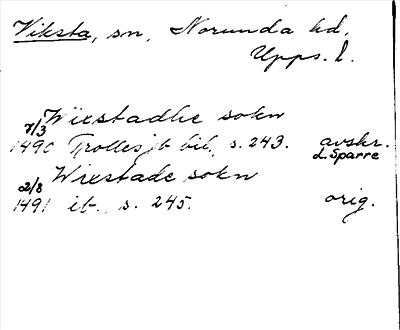 Viksta, sn, Norunda hd,
Upps. l.
Wixstadhe sokn
7/3
1490 Trolles jb bil., s. 243. avskr.
L. Sparre
Wixstade sokn
2/8
1491 ib., s. 245. orig.